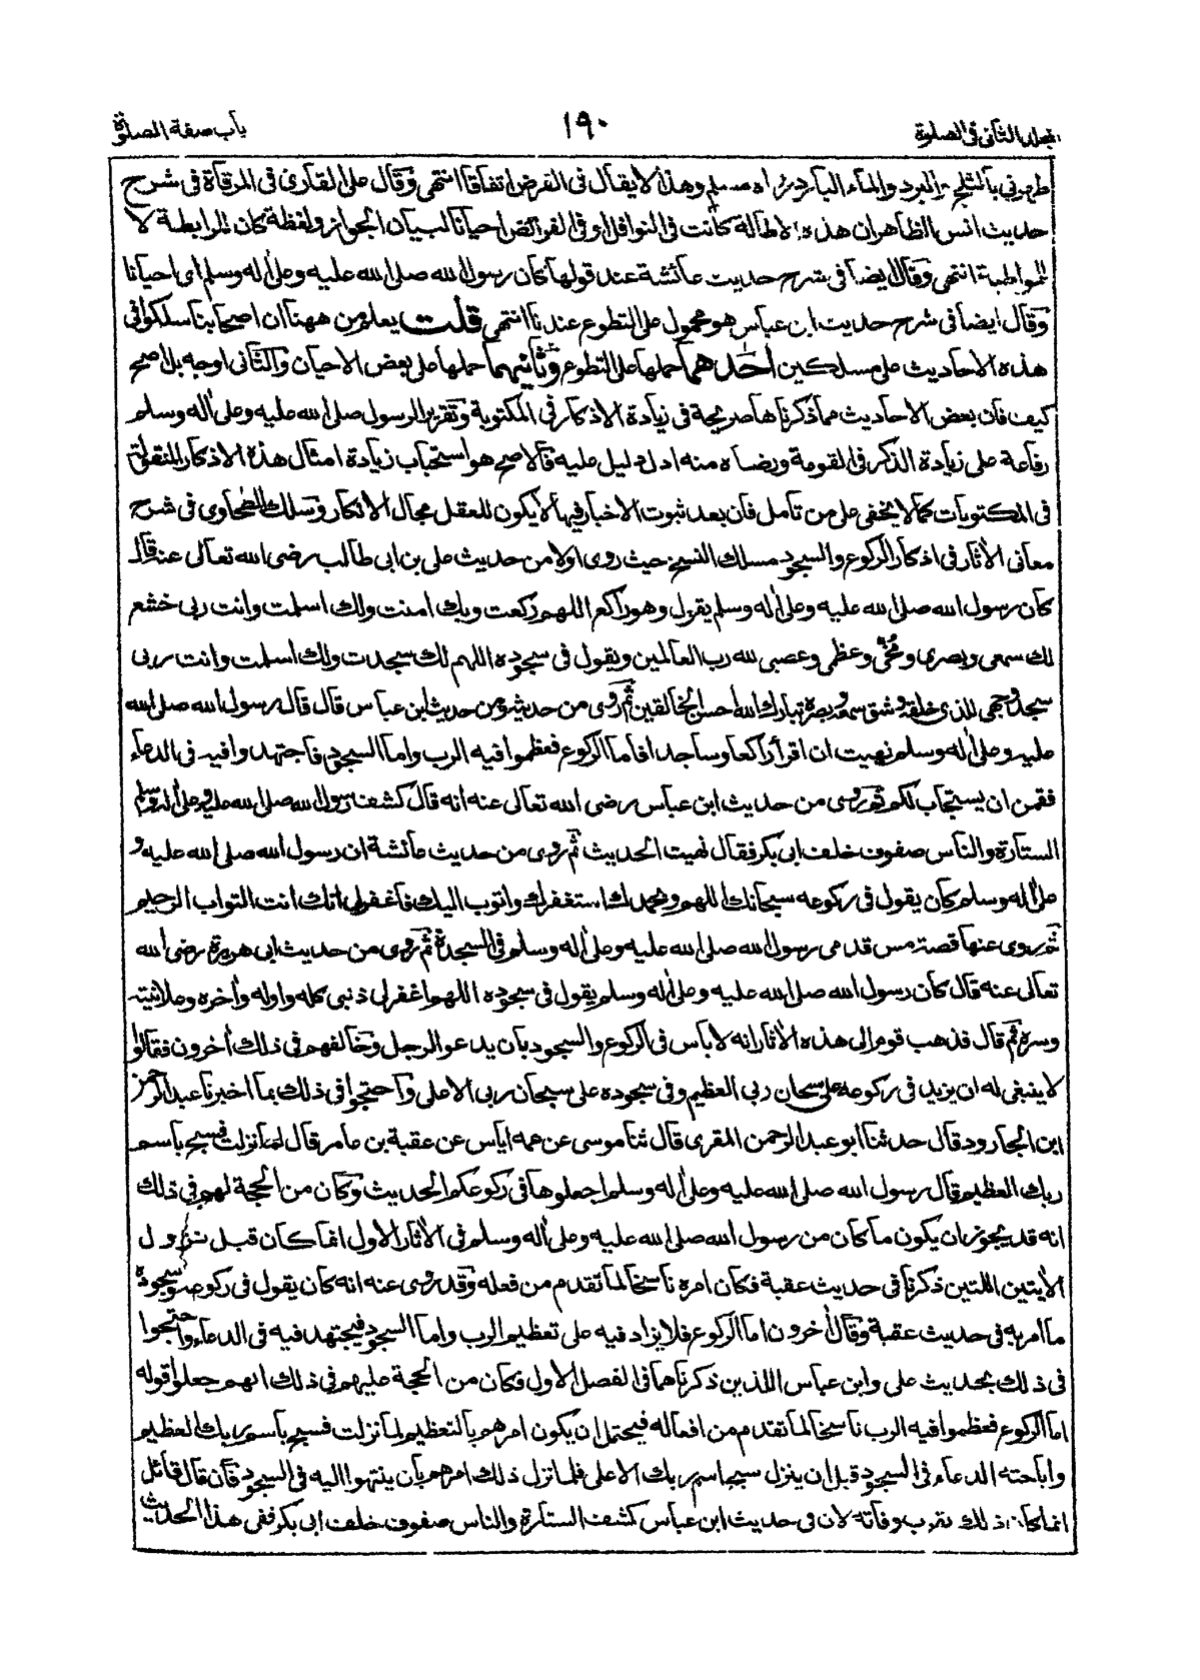 باب صفة الصلوٰة
١٩٠
المجلد الثانى فى الصلوة
طهرنى بالثلج والبرد والماء البارد رواه مسلم وهذا لا يقال فى الفرض اتفاقا انتهى وقال على القارى فى المرقاة فى شرح
حديث انس الظاهر ان هذه الاطالة كانت فى النوافل او فى الفرائض احيانا لبيان الجواز ولفظة كان للرابطة لا
للمواظبة انتهى وقال ايضا فى شرح حديث عائشة عند قولها كان رسول الله صلى الله عليه وعلى اله وسلم اى احيانا
وقال ايضا فى شرح حديث ابن عباس هو محمول على التطوع عندنا انتهى قلت يعلم من ههنا ان اصحابنا سلكوا فى
هذه الاحاديث على مسلكين احدهما حملها على التطوع وثانيهما حملها على بعض الاحيان والثانى اوجه بل اصح
كيف فان بعض الاحاديث مما ذكرناها صريحة فى زيادة الاذكار فى المكتوبة وتقرير الرسول صلى الله عليه وعلى اله وسلم
رفاعة على زيادة الذكر فى القومة ورضاه منه ادل دليل عليه فالاصح هو استحباب زيادة امثال هذه الاذكار المنقولة
فى المكتوبات كما لا يخفى على من تامل فان بعد ثبوت الاخبار فيها لا يكون للعقل مجال الانكار وسلك الطحاوى فى شرح
معانى الاٰثار فى اذكار الركوع والسجود مسلك النسخ حيث روى اولا من حديث على بن ابى طالب رضى الله تعالى عنه قال
كان رسول الله صلى الله عليه وعلى اله وسلم يقول وهو راكع اللهم ركعت وبك امنت ولك اسلمت وانت ربى خشع
لك سمعى وبصرى ومخى وعظمى وعصبى لله رب العالمين ويقول فى سجوده اللهم لك سجدت ولك اسلمت وانت ربى
سجد وجهى للذى خلقه وشق سمعه وبصره تبارك الله احسن الخالقين ثم روى من حديثه ومن حديث ابن عباس قال قال رسول الله صلى الله
عليه وعلى اله وسلم نهيت ان اقرأ راكعا وساجدا فاما الركوع فعظموا فيه الرب واما السجود فاجتهدوا فيه فى الدعاء
فقمن ان يستجاب لكم ثم روى من حديث ابن عباس رضى الله تعالى عنه انه قال كشف رسول الله صلى الله عليه وعلى اله وسلم
الستارة والناس صفوف خلف ابى بكر فقال نهيت الحديث ثم روى من حديث عائشة ان رسول الله صلى الله عليه و
على اله وسلم كان يقول فى ركوعه سبحانك اللهم وبحمدك استغفرك واتوب اليك فاغفرلى انك انت التواب الرحيم
ثم روى عنها قصة مس قدمى رسول الله صلى الله عليه وعلى اله وسلم فى السجدة ثم روى من حديث ابى هريرة رضى الله
تعالى عنه قال كان رسول الله صلى الله عليه وعلى اله وسلم يقول فى سجوده اللهم اغفرلى ذنبى كله واوله واٰخره وعلانيته
وسره ثم قال فذهب قوم الى هذه الاٰثار انه لا باس فى الركوع والسجود بان يدعو الرجل وخالفهم فى ذلك اٰخرون فقالوا
لا ينبغى له ان يزيد فى ركوعه على سبحان ربى العظيم وفى سجوده على سبحان ربى الاعلى واحتجوا فى ذلك بما اخبرنا عبد الرحمن
ابن الجارود قال حدثنا ابو عبد الرحمن المقرى قال ثنا موسى عن عمه اياس عن عقبة بن عامر قال لما نزلت فسبح باسم
ربك العظيم قال رسول الله صلى الله عليه وعلى اله وسلم اجعلوها فى ركوعكم الحديث وكان من الحجة لهم فى ذلك
انه قد يجوز ان يكون ما كان من رسول الله صلى الله عليه وعلى اله وسلم فى الاٰثار الاول انما كان قبل نزول
الاٰيتين اللتين ذكرنا فى حديث عقبة فكان امره ناسخا لما تقدم من فعله وقد روى عنه انه كان يقول فى ركوعه وسجوده
ما امر به فى حديث عقبة وقال اٰخرون اما الركوع فلا يزاد فيه على تعظيم الرب واما السجود فيجتهد فيه فى الدعاء واحتجوا
فى ذلك بحديث على وابن عباس اللذين ذكرناهما فى الفصل الاول فكان من الحجة عليهم فى ذلك انهم جعلوا قوله
اما الركوع فعظموا فيه الرب ناسخا لما تقدم من افعاله فيحتمل ان يكون امرهم بالتعظيم لما نزلت فسبح باسم ربك العظيم
واباحته الدعاء فى السجود قبل ان ينزل سبح اسم ربك الاعلى فلما نزل ذلك امرهم بان ينتهوا اليه فى السجود فان قال قائل
انما كان ذلك بقرب وفاته لان فى حديث ابن عباس كشف الستارة والناس صفوف خلف ابى بكر ففى هذا الحديث